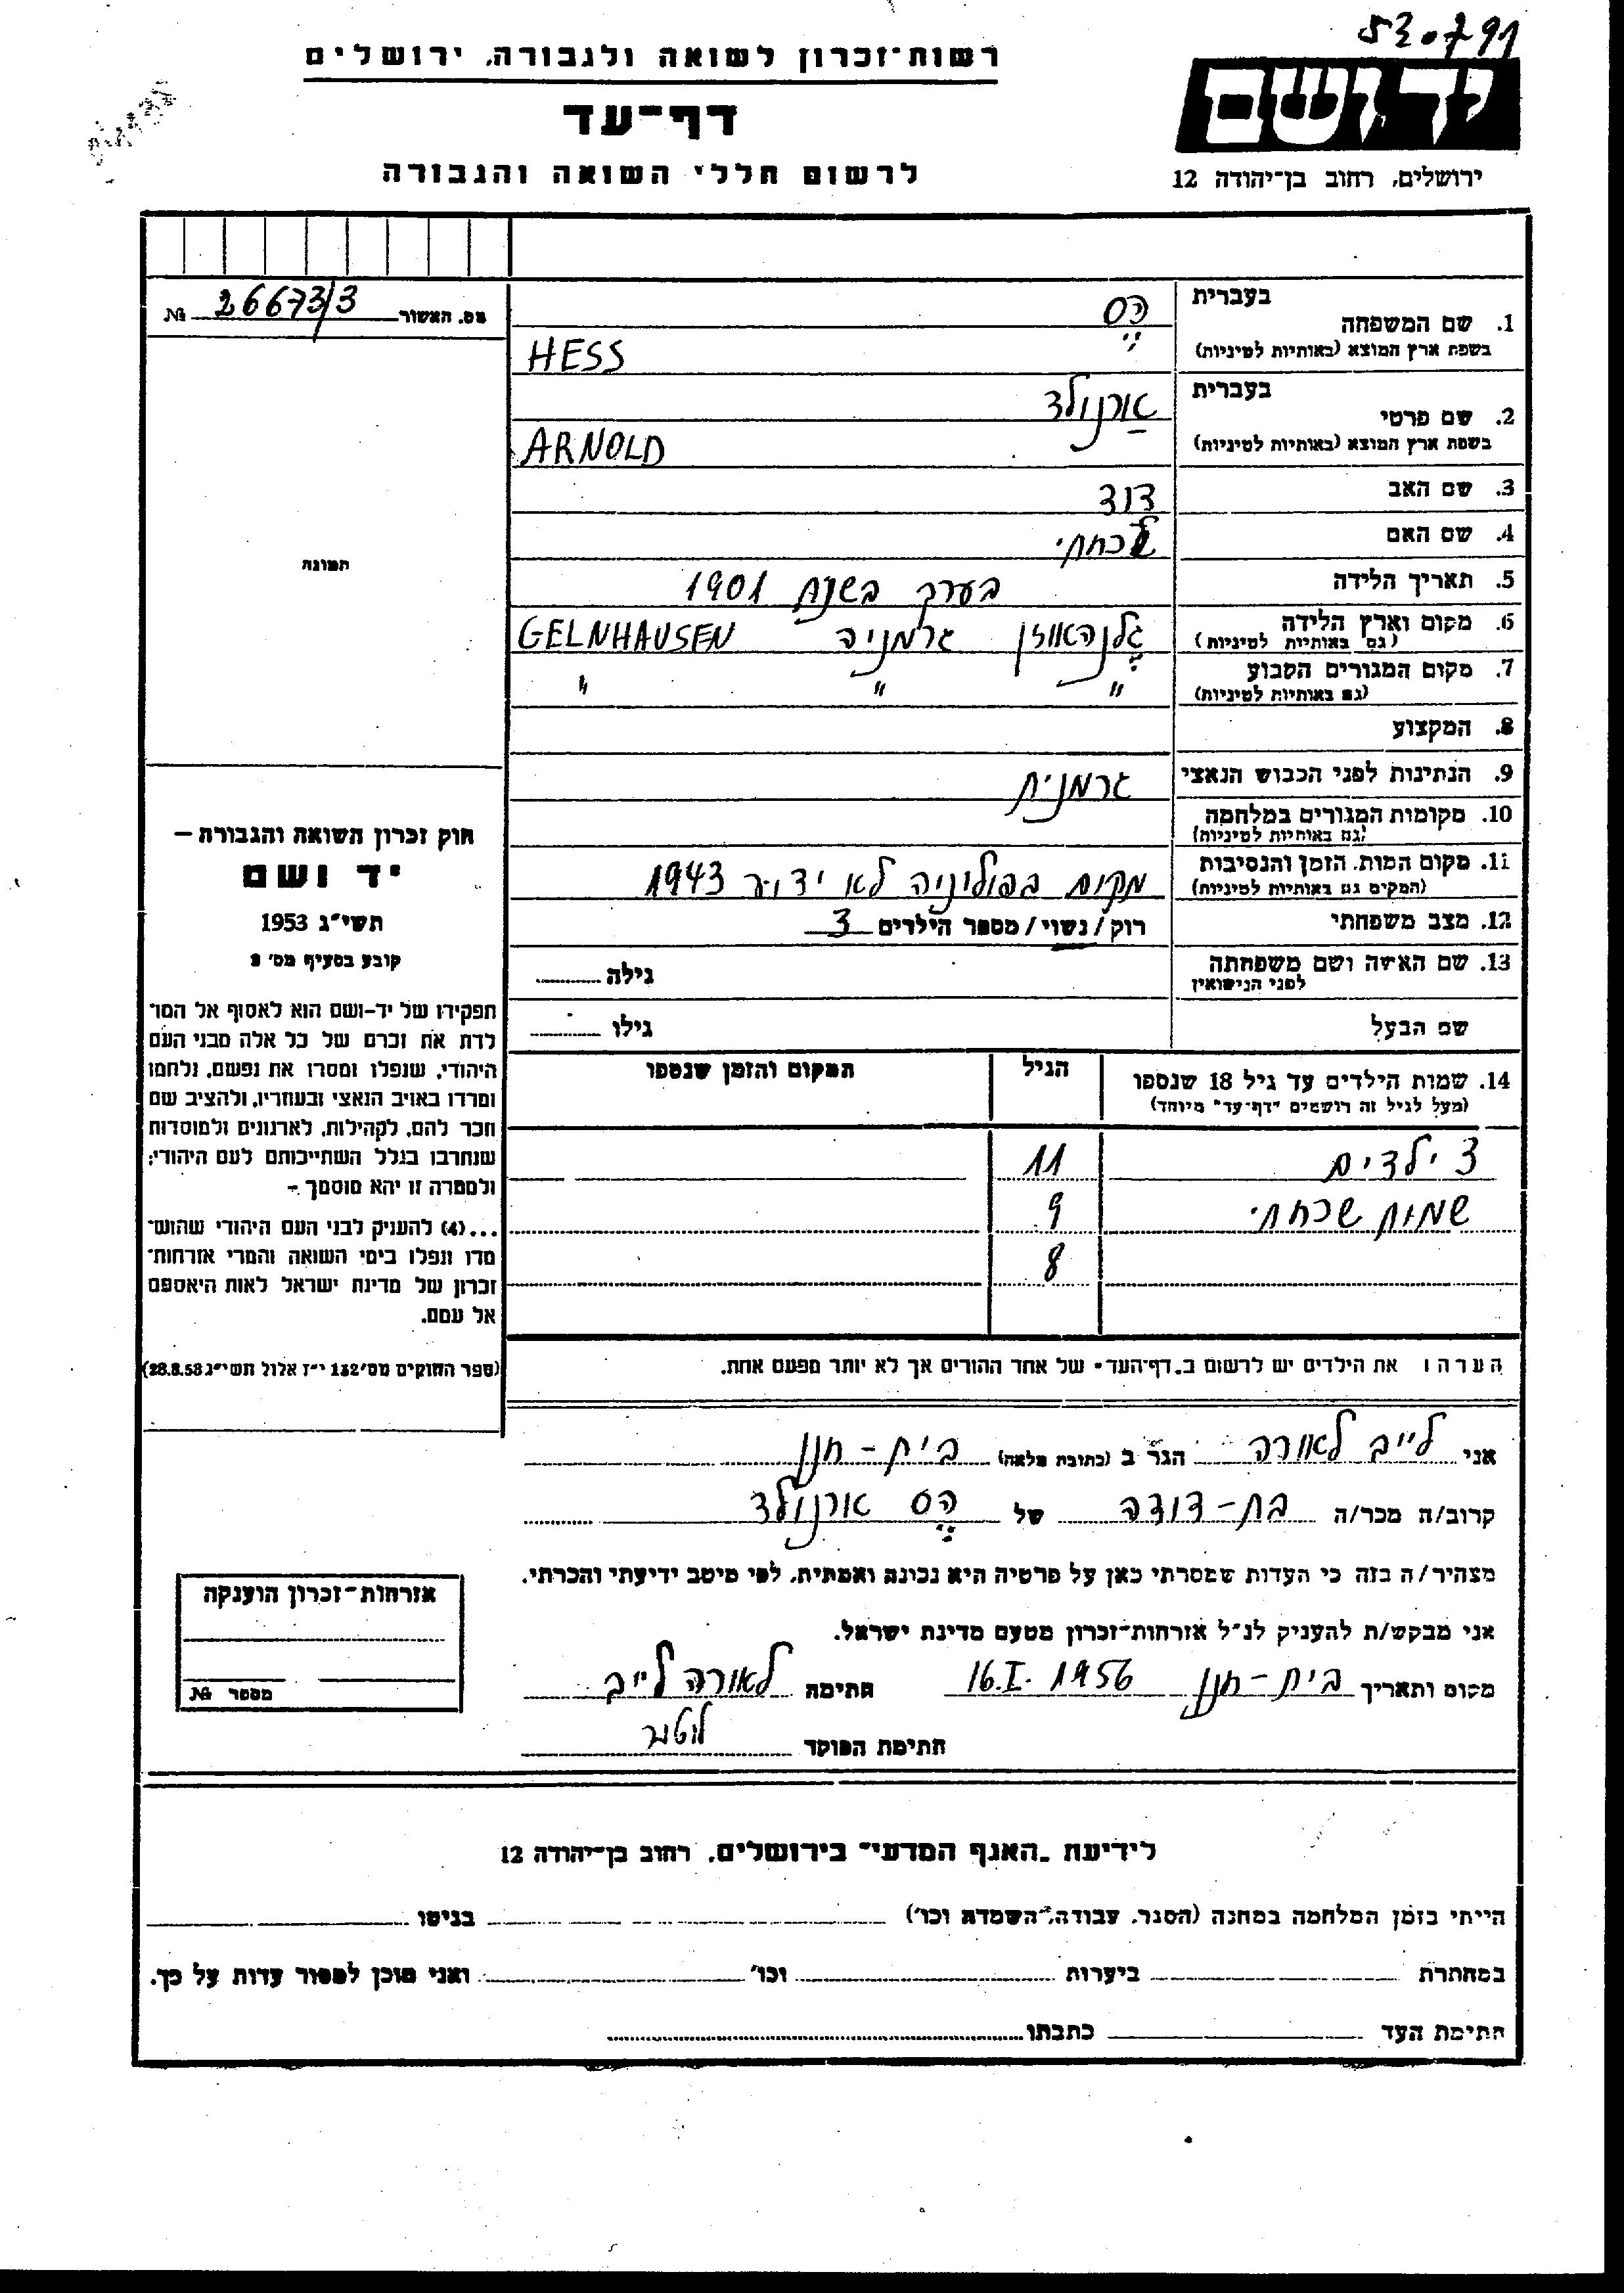 רשות־זכרון לשואה ולגבורה, ירושלים
דף־עד
לרשום חללי השואה והגבורה
יד ושם
ירושלים, רחוב בן־יהודה 12
מס. האשור 26673/3 №
תמונה
בעברית
1. שם המשפחה הס
בשפת ארץ המוצא (באותיות לטיניות) HESS
בעברית
2. שם פרטי ארנולד
בשפת ארץ המוצא (באותיות לטיניות) ARNOLD
3. שם האב דוד
4. שם האם שכחתי
5. תאריך הלידה בערך בשנת 1901
6. מקום וארץ הלידה גלנהאוזן גרמניה GELNHAUSEN
(גם באותיות לטיניות)
7. מקום המגורים הקבוע " " "
(גם באותיות לטיניות)
8. המקצוע
9. הנתינות לפני הכבוש הנאצי גרמנית
10. מקומות המגורים במלחמה
(גם באותיות לטיניות)
11. מקום המות, הזמן והנסיבות מקום בפולוניה לא ידוע 1943
(המקום גם באותיות לטיניות)
12. מצב משפחתי רוק / נשוי / מספר הילדים 3
13. שם האשה ושם משפחתה גילה
לפני הנישואין
שם הבעל גילו
14. שמות הילדים עד גיל 18 שנספו הגיל המקום והזמן שנספו
(מעל לגיל זה רושמים "דף־עד" מיוחד)
3 ילדים 11
שמות שכחתי 9
8
הערה: את הילדים יש לרשום ב„דף־העד" של אחד ההורים אך לא יותר מפעם אחת.
חוק זכרון השואה והגבורה –
יד ושם
תשי"ג 1953
קובע בסעיף מס' 2
תפקידו של יד-ושם הוא לאסוף אל המו־
לדת את זכרם של כל אלה מבני העם
היהודי, שנפלו ומסרו את נפשם, נלחמו
ומרדו באויב הנאצי ובעוזריו, ולהציב שם
וזכר להם, לקהילות, לארגונים ולמוסדות
שנחרבו בגלל השתייכותם לעם היהודי;
ולמטרה זו יהא מוסמך –
...(4) להעניק לבני העם היהודי שהוש־
מדו ונפלו בימי השואה והמרי אזרחות־
זכרון של מדינת ישראל לאות היאספם
אל עמם.
(ספר החוקים מס' 132 י"ז אלול תשי"ג 28.8.53)
אני לייב לאורה הגר ב (כתובת מלאה) בית-חנן
קרוב/ה מכר/ה בת-דודה של הס ארנולד
מצהיר/ה בזה כי העדות שמסרתי כאן על פרטיה היא נכונה ואמתית, לפי מיטב ידיעתי והכרתי.
אני מבקש/ת להעניק לנ"ל אזרחות־זכרון מטעם מדינת ישראל.
מקום ותאריך בית-חנן 16.I.1956 חתימה לאורה לייב
חתימת הפוקד
אזרחות־זכרון הוענקה
מספר №
לידיעת „האגף המדעי" בירושלים, רחוב בן־יהודה 12
הייתי בזמן המלחמה במחנה (הסגר, עבודה, השמדה וכו') בגיטו
במחתרת ביערות וכו' ואני מוכן למסור עדות על כך.
חתימת העד כתבתו